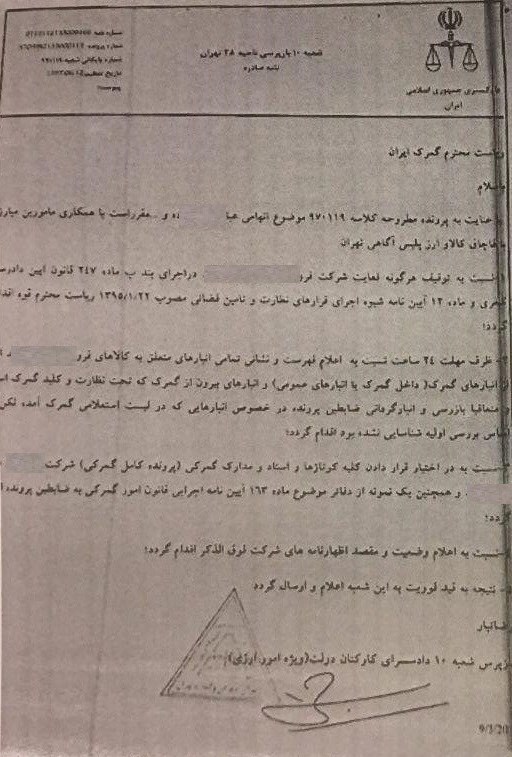 شماره نامه
شماره پرونده
شماره بایگانی شعبه ۹۷۰۱۱۹
تاریخ تنظیم
شعبه ۱۰ بازپرسی ناحیه ۲۸ تهران
نامه صادره
دادگستری جمهوری اسلامی
ایران
ریاست محترم گمرک ایران
باسلام
با عنایت به پرونده مطروحه کلاسه ۹۷۰۱۱۹ موضوع اتهامی عبا ده و ... مقرراست با همکاری مامورین مبارز
با قاچاق کالاو ارز پلیس آگاهی تهران
نسبت به توقیف هرگونه فعالیت شرکت فرو دراجرای بند ب ماده ۲۴۷ قانون آیین دادرس
کیفری و ماده ۱۳ آیین نامه شیوه اجرای قرارهای نظارت و تامین قضائی مصوب ۱۳۹۵/۱/۲۲ ریاست محترم قوه اقدا
گردد؛
ظرف مهلت ۲۴ ساعت نسبت به اعلام فهرست و نشانی تمامی انبارهای متعلق به کالاهای فرو
انبارهای گمرک( داخل گمرک یا انبارهای عمومی) و انبارهای بیرون از گمرک که تحت نظارت و کلید گمرک اس
متعاقبا بازرسی و انبارگردانی ضابطین پرونده در خصوص انبارهایی که در لیست استعلامی گمرک آمده لکن
اساس بررسی اولیه شناسایی نشده بود اقدام گردد؛
نسبت به در اختیار قرار دادن کلیه کوتاژها و اسناد و مدارک گمرکی (پرونده کامل گمرکی) شرکت
و همچنین یک نمونه از دفاتر موضوع ماده ۱۶۳ آیین نامه اجرایی قانون امور گمرکی به ضابطین پرونده
گردد؛
نسبت به اعلام وضعیت و مقصد اظهارنامه های شرکت فوق الذکر اقدام گردد؛
نتیجه به قید فوریت به این شعبه اعلام و ارسال گردد
بازپرس شعبه ۱۰ دادسرای کارکنان دولت(ویژه امور ارزی)
9/3/20